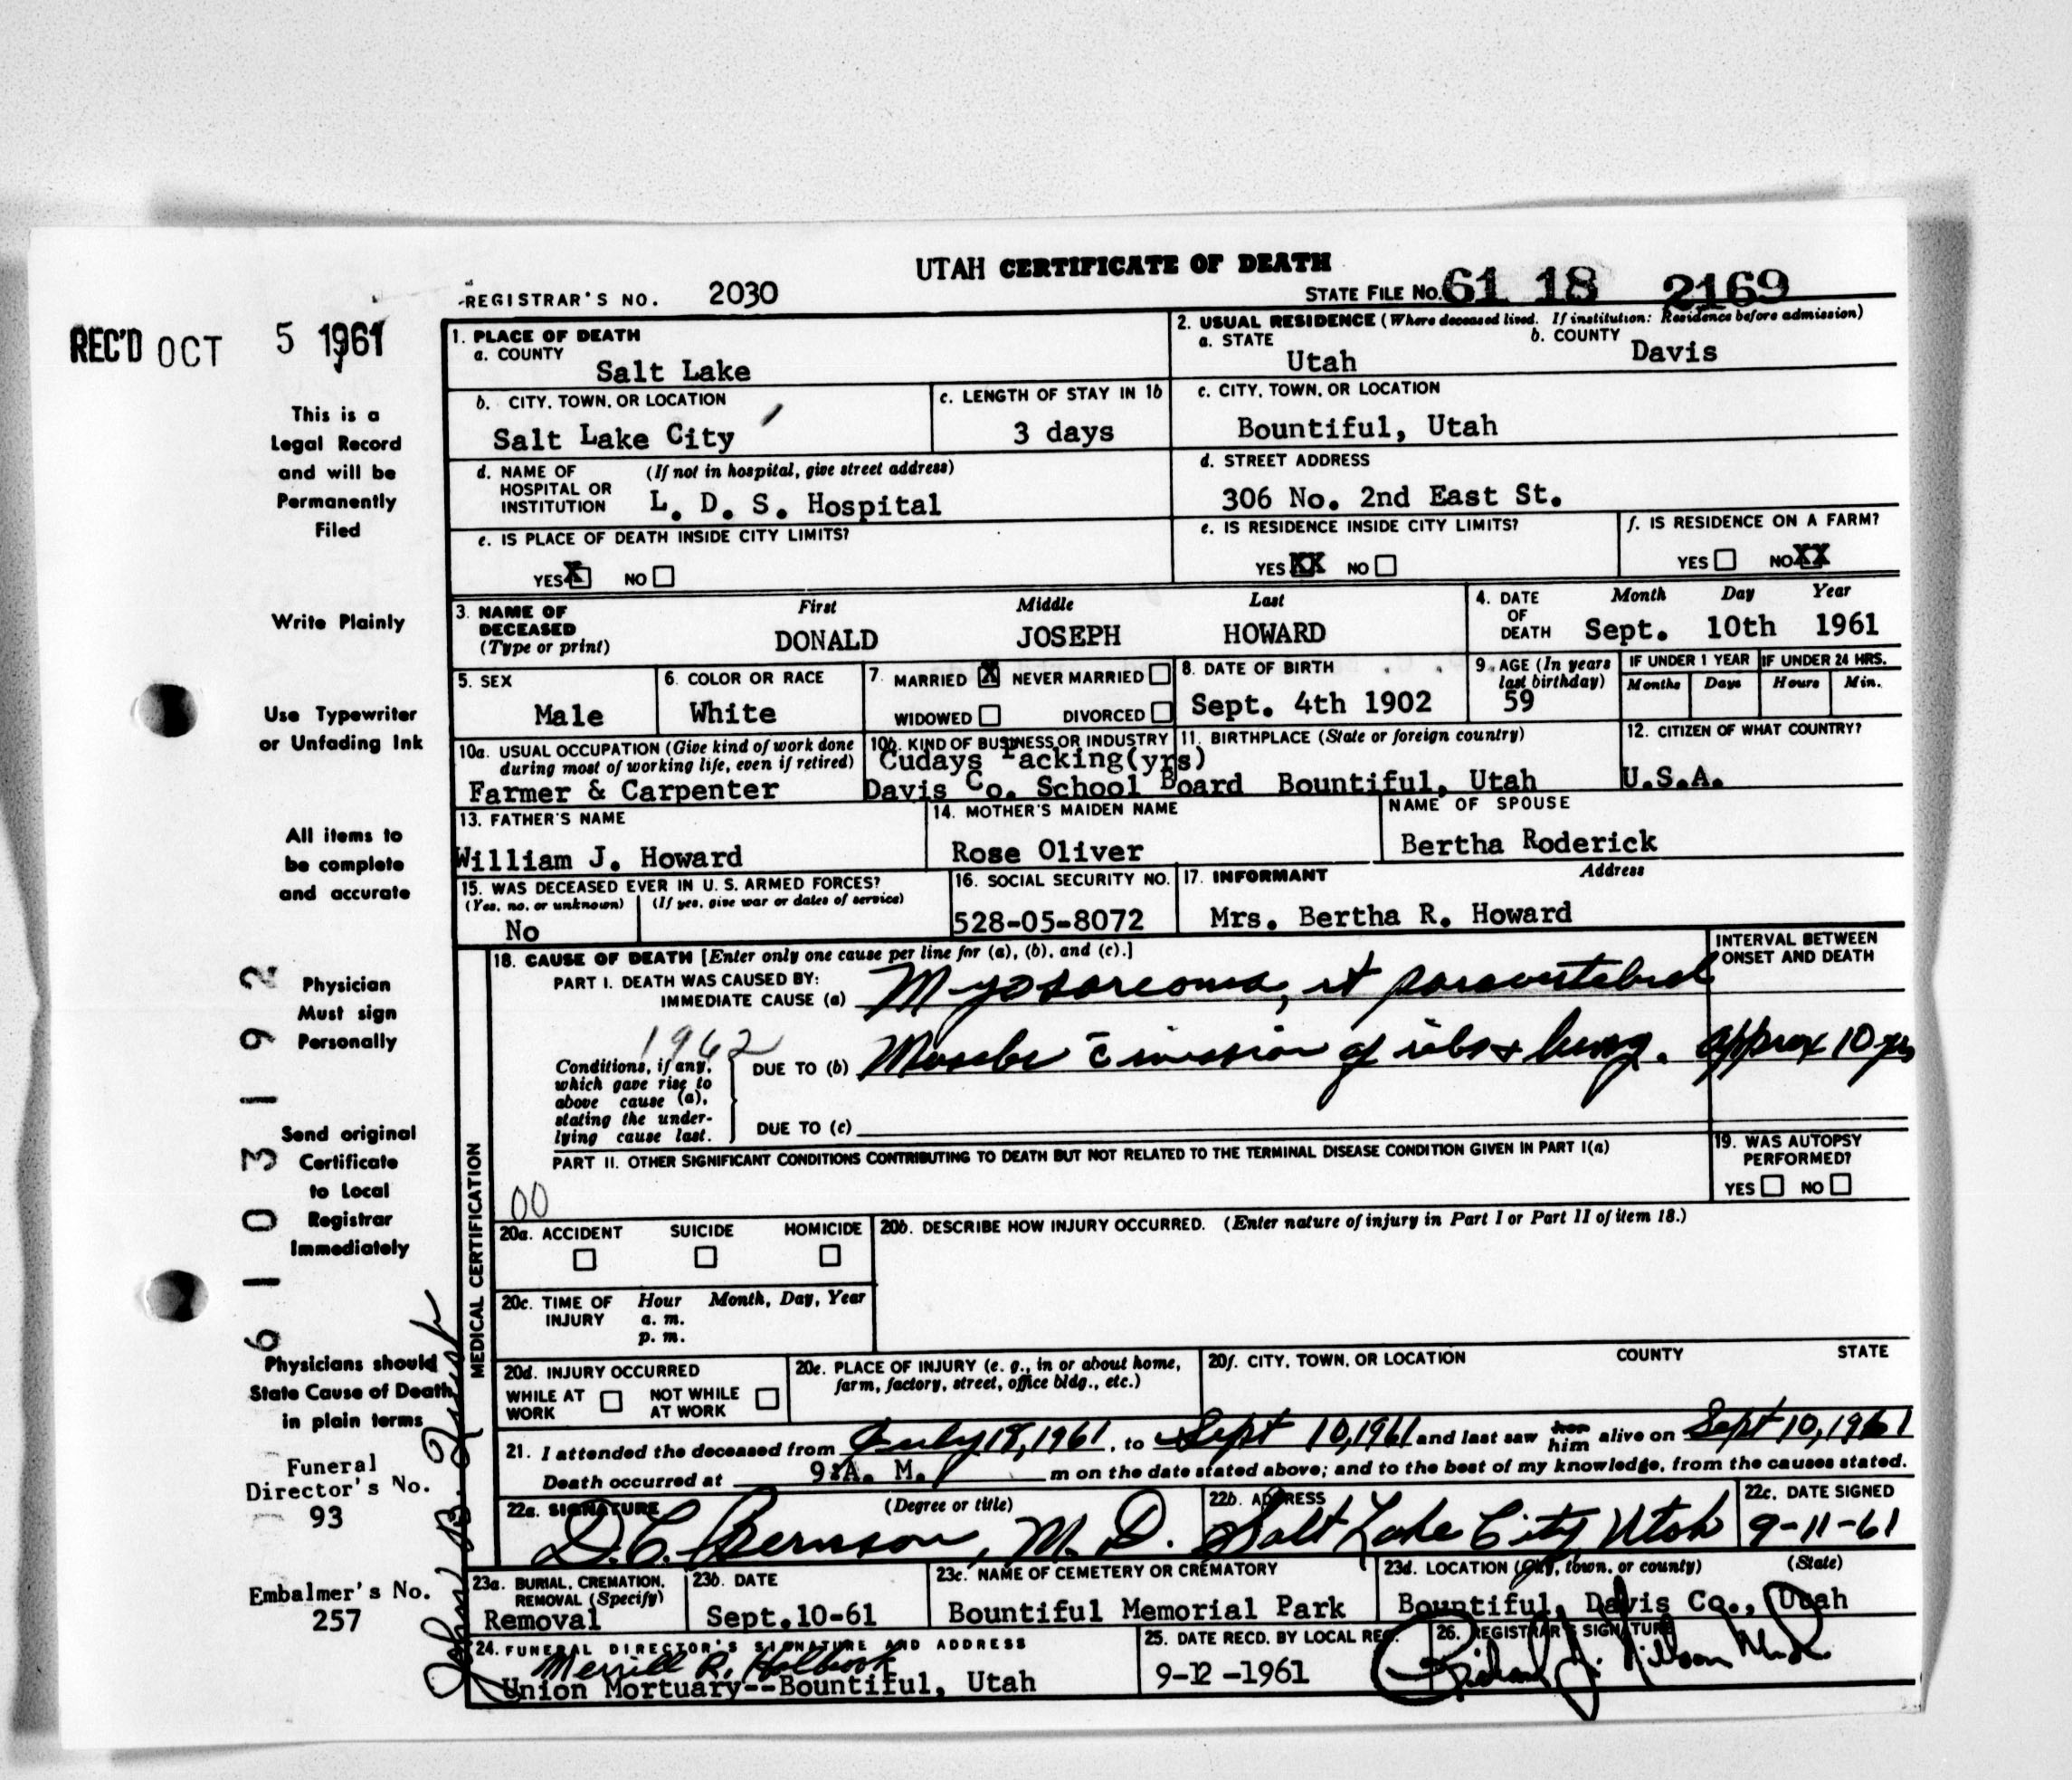 UTAH CERTIFICATE OF DEATH
REGISTRAR'S NO. 2030
STATE FILE No. 61 18 2169
REC'D OCT 5 1961
This is a
Legal Record
and will be
Permanently
Filed
Write Plainly
Use Typewriter
or Unfading Ink
All items to
be complete
and accurate
Physician
Must sign
Personally
Send original
Certificate
to Local
Registrar
Immediately
Physicians should
State Cause of Death
in plain terms
Funeral
Director's No.
93
Embalmer's No.
257
6103192
1. PLACE OF DEATH
a. COUNTY
Salt Lake
2. USUAL RESIDENCE (Where deceased lived. If institution: Residence before admission)
a. STATE Utah b. COUNTY Davis
b. CITY, TOWN, OR LOCATION
Salt Lake City
c. LENGTH OF STAY IN 1b
3 days
c. CITY, TOWN, OR LOCATION
Bountiful, Utah
d. NAME OF HOSPITAL OR INSTITUTION (If not in hospital, give street address)
L. D. S. Hospital
d. STREET ADDRESS
306 No. 2nd East St.
e. IS PLACE OF DEATH INSIDE CITY LIMITS?
YES X NO
e. IS RESIDENCE INSIDE CITY LIMITS?
YES XX NO
f. IS RESIDENCE ON A FARM?
YES NO XX
3. NAME OF DECEASED (Type or print)
First Middle Last
DONALD JOSEPH HOWARD
4. DATE OF DEATH Month Day Year
Sept. 10th 1961
5. SEX
Male
6. COLOR OR RACE
White
7. MARRIED X NEVER MARRIED
WIDOWED DIVORCED
8. DATE OF BIRTH
Sept. 4th 1902
9. AGE (In years last birthday)
59
IF UNDER 1 YEAR IF UNDER 24 HRS.
Months Days Hours Min.
10a. USUAL OCCUPATION (Give kind of work done during most of working life, even if retired)
Farmer & Carpenter
10b. KIND OF BUSINESS OR INDUSTRY
Cudays Packing(yrs)
Davis Co. School Board
11. BIRTHPLACE (State or foreign country)
Bountiful, Utah
12. CITIZEN OF WHAT COUNTRY?
U.S.A.
13. FATHER'S NAME
William J. Howard
14. MOTHER'S MAIDEN NAME
Rose Oliver
NAME OF SPOUSE
Bertha Roderick
15. WAS DECEASED EVER IN U. S. ARMED FORCES?
(Yes, no, or unknown) (If yes, give war or dates of service)
No
16. SOCIAL SECURITY NO.
528-05-8072
17. INFORMANT Address
Mrs. Bertha R. Howard
MEDICAL CERTIFICATION
18. CAUSE OF DEATH [Enter only one cause per line for (a), (b), and (c).]
INTERVAL BETWEEN ONSET AND DEATH
PART I. DEATH WAS CAUSED BY:
IMMEDIATE CAUSE (a) Myosarcoma, rt paravertebral
1962
Conditions, if any, which gave rise to above cause (a), stating the underlying cause last.
DUE TO (b) Muscles c̄ invasion of ribs & lung. approx 10 yrs
DUE TO (c)
PART II. OTHER SIGNIFICANT CONDITIONS CONTRIBUTING TO DEATH BUT NOT RELATED TO THE TERMINAL DISEASE CONDITION GIVEN IN PART I(a)
00
19. WAS AUTOPSY PERFORMED?
YES NO
20a. ACCIDENT SUICIDE HOMICIDE
20b. DESCRIBE HOW INJURY OCCURRED. (Enter nature of injury in Part I or Part II of item 18.)
20c. TIME OF INJURY Hour Month, Day, Year
a. m.
p. m.
20d. INJURY OCCURRED
WHILE AT WORK NOT WHILE AT WORK
20e. PLACE OF INJURY (e. g., in or about home, farm, factory, street, office bldg., etc.)
20f. CITY, TOWN, OR LOCATION COUNTY STATE
21. I attended the deceased from July 18, 1961, to Sept 10, 1961 and last saw her him alive on Sept 10, 1961
Death occurred at 9:A. M. m on the date stated above; and to the best of my knowledge, from the causes stated.
22a. SIGNATURE (Degree or title)
D. C. Bernson, M. D.
22b. ADDRESS
Salt Lake City, Utah
22c. DATE SIGNED
9-11-61
23a. BURIAL, CREMATION, REMOVAL (Specify)
Removal
23b. DATE
Sept.10-61
23c. NAME OF CEMETERY OR CREMATORY
Bountiful Memorial Park
23d. LOCATION (City, town, or county) (State)
Bountiful, Davis Co., Utah
24. FUNERAL DIRECTOR'S SIGNATURE AND ADDRESS
Merrill R. Holbrook
Union Mortuary--Bountiful, Utah
25. DATE RECD. BY LOCAL REG.
9-12-1961
26. REGISTRAR'S SIGNATURE